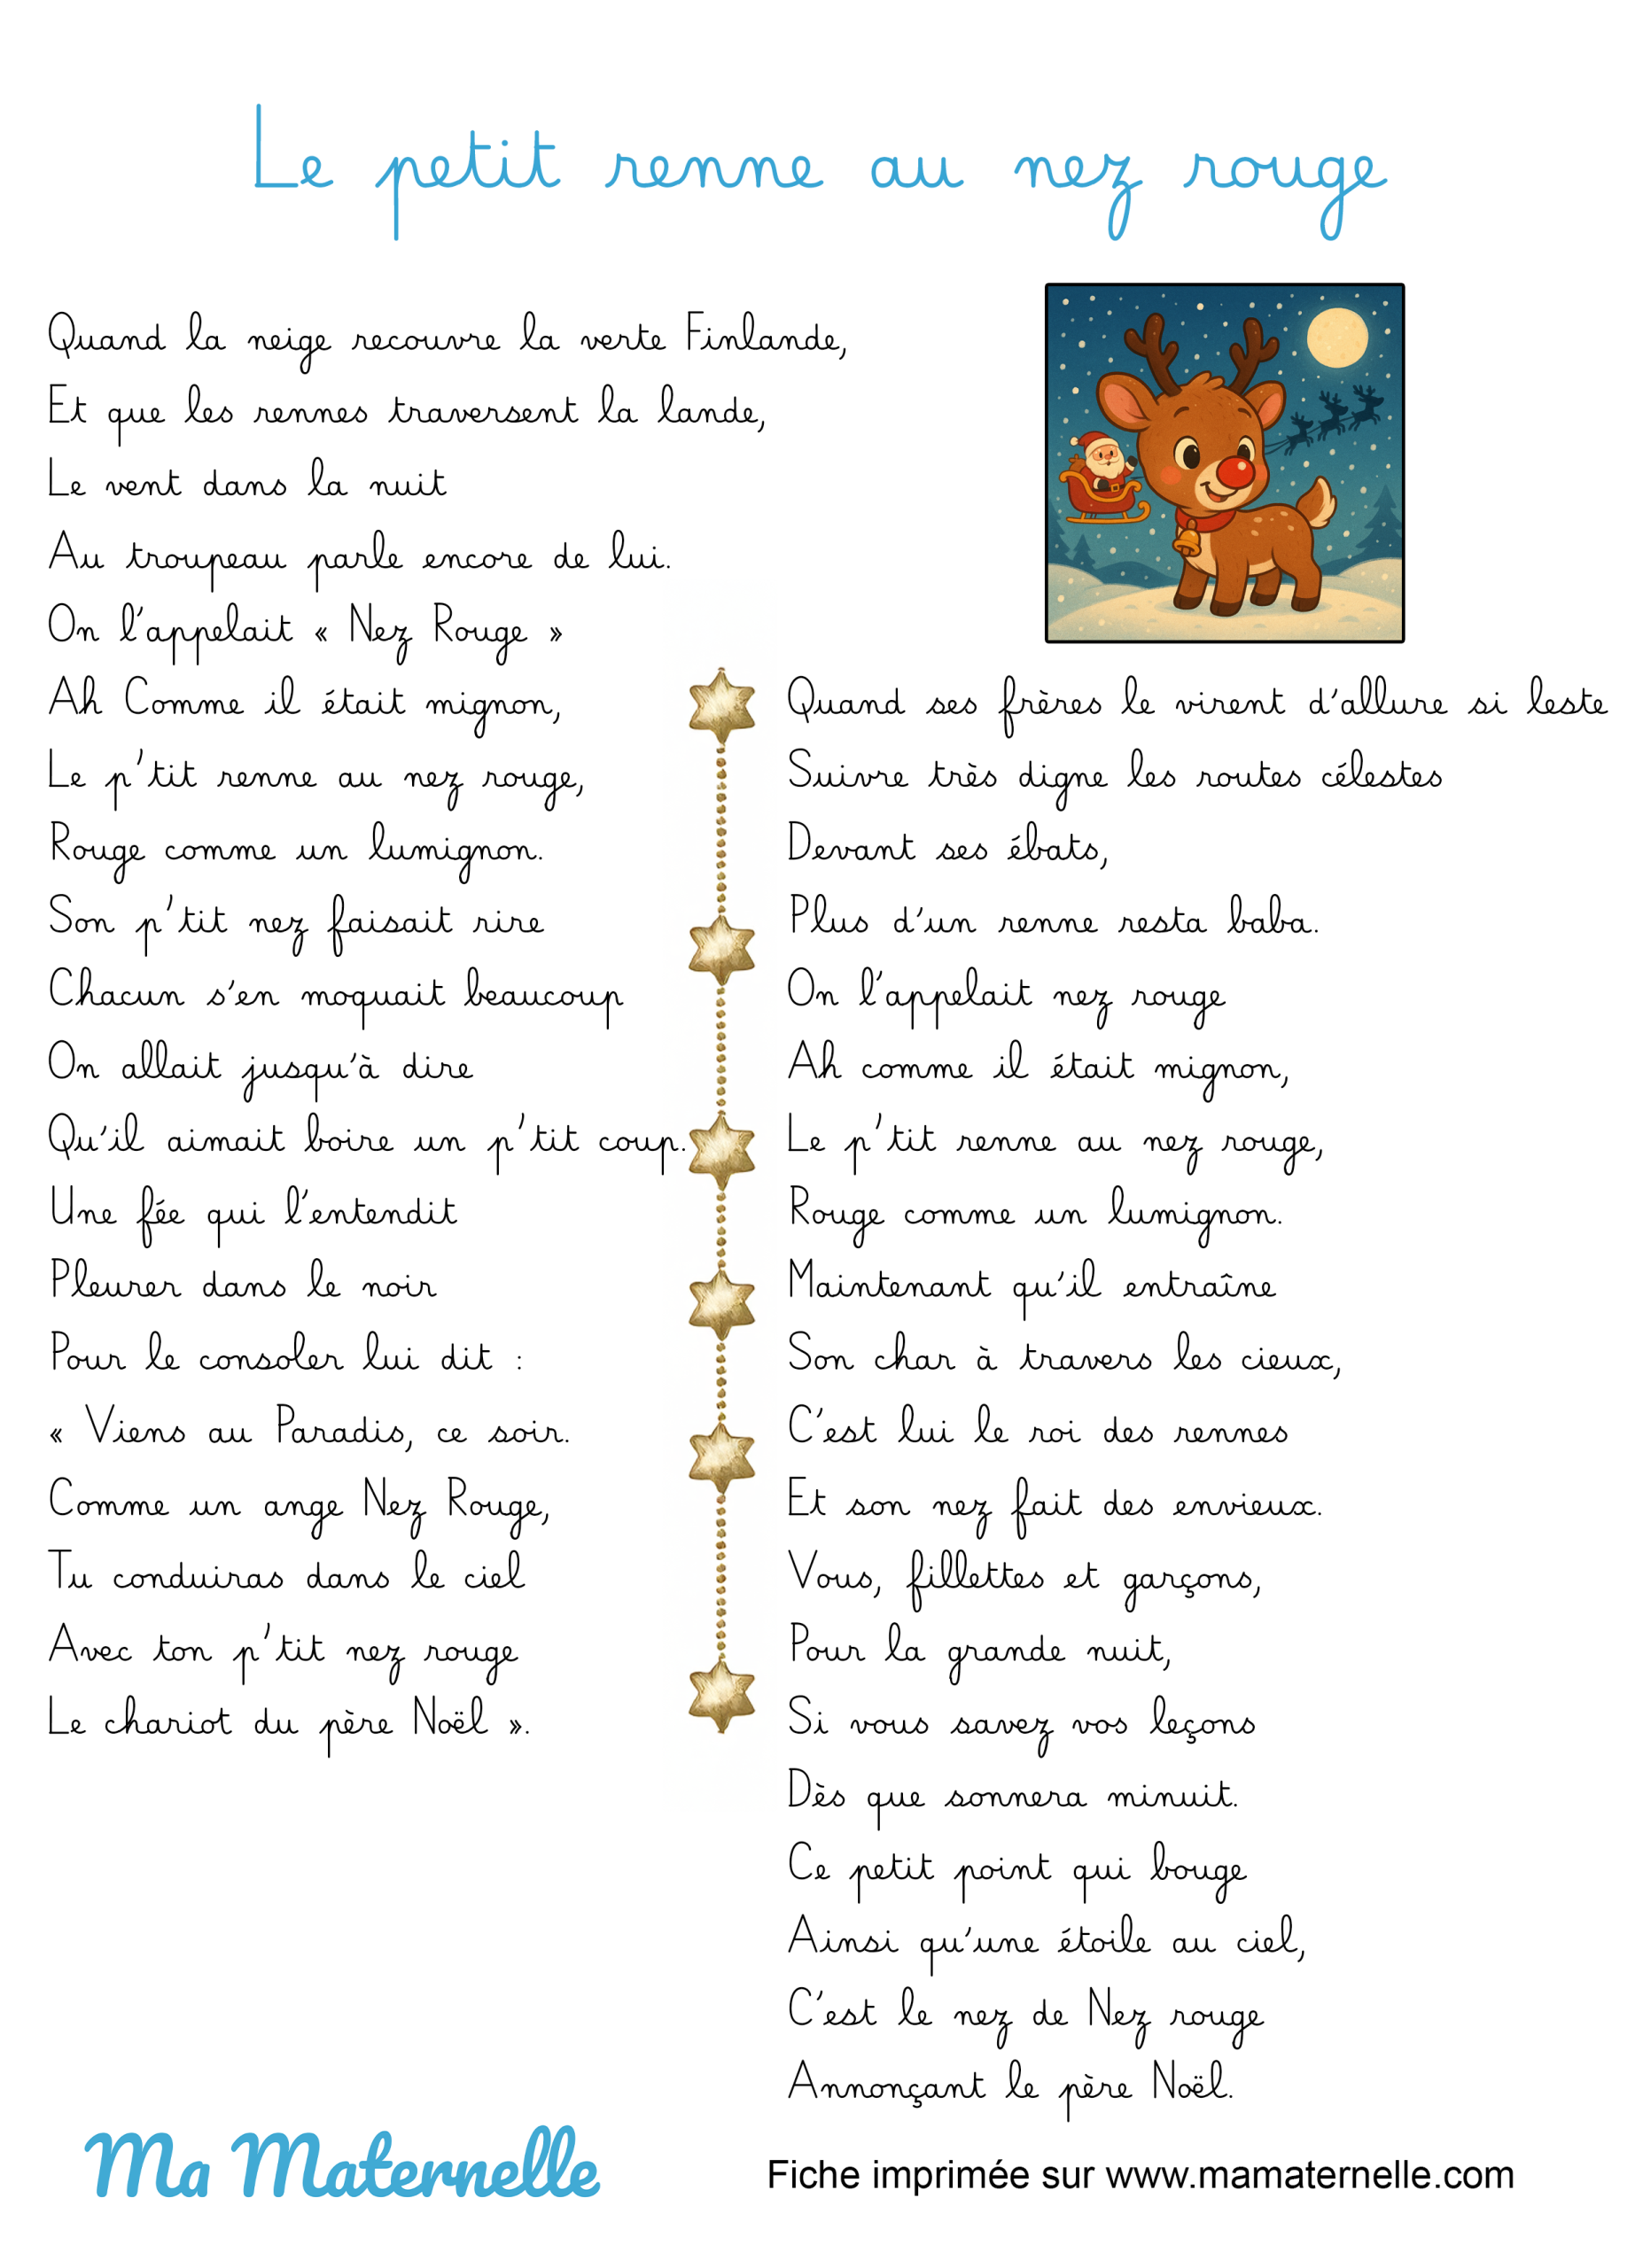 Le petit renne au nez rouge
Quand la neige recouvre la verte Finlande,
Et que les rennes traversent la lande,
Le vent dans la nuit
Au troupeau parle encore de lui.
On l'appelait « Nez Rouge »
Ah Comme il était mignon,
Le p'tit renne au nez rouge,
Rouge comme un lumignon.
Son p'tit nez faisait rire
Chacun s'en moquait beaucoup
On allait jusqu'à dire
Qu'il aimait boire un p'tit coup.
Une fée qui l'entendit
Pleurer dans le noir
Pour le consoler lui dit :
« Viens au Paradis, ce soir.
Comme un ange Nez Rouge,
Tu conduiras dans le ciel
Avec ton p'tit nez rouge
Le chariot du père Noël ».
Quand ses frères le virent d'allure si leste
Suivre très digne les routes célestes
Devant ses ébats,
Plus d'un renne resta baba.
On l'appelait nez rouge
Ah comme il était mignon,
Le p'tit renne au nez rouge,
Rouge comme un lumignon.
Maintenant qu'il entraîne
Son char à travers les cieux,
C'est lui le roi des rennes
Et son nez fait des envieux.
Vous, fillettes et garçons,
Pour la grande nuit,
Si vous savez vos leçons
Dès que sonnera minuit.
Ce petit point qui bouge
Ainsi qu'une étoile au ciel,
C'est le nez de Nez rouge
Annonçant le père Noël.
Ma Maternelle
Fiche imprimée sur www.mamaternelle.com